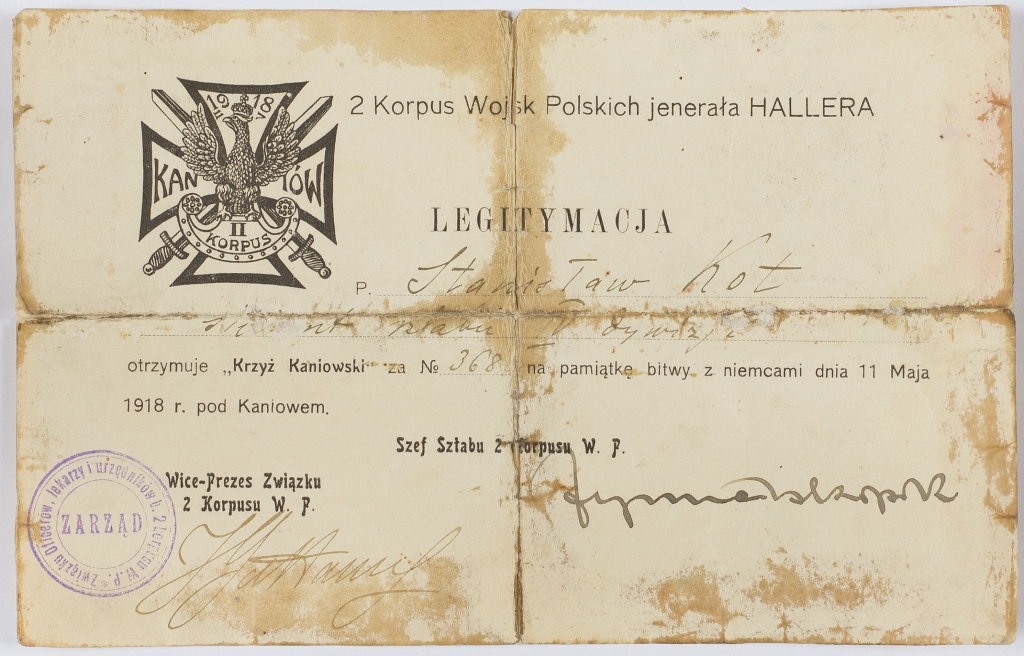 19 18
II V
KAN IÓW
II
KORPUS
2 Korpus Wojsk Polskich jenerała HALLERA
LEGITYMACJA
P. Stanisław Kot
sztabu IV dywizji
otrzymuje „Krzyż Kaniowski" za № 368 na pamiątkę bitwy z niemcami dnia 11 Maja
1918 r. pod Kaniowem.
Szef Sztabu 2 Korpusu W. P.
Wice-Prezes Związku
2 Korpusu W. P.
Związku Oficerów, lekarzy i urzędników b. 2 Korpusu W. P.
ZARZĄD